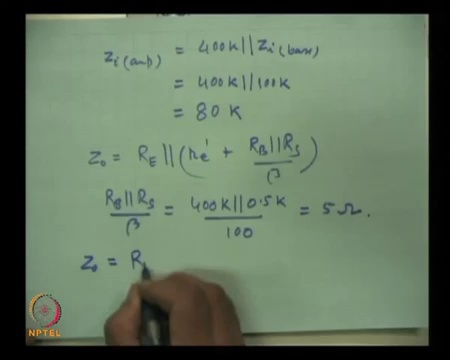 Zi(amp) = 400K || Zi(base)
= 400K || 100K
= 80 K
Zo = RE || (re' + RB||RS / β)
RB||RS / β = 400K || 0.5K / 100 = 5 Ω.
Zo = R
NPTEL